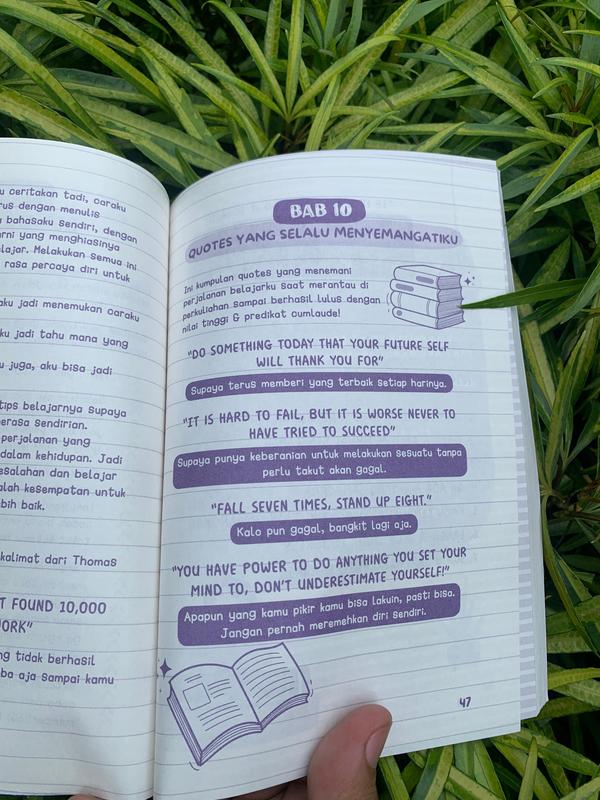 u ceritakan tadi, caraku
rus dengan menulis
bahasaku sendiri, dengan
rni yang menghiasinya
lajar. Melakukan semua ini
rasa percaya diri untuk
aku jadi menemukan caraku
ku jadi tahu mana yang
u juga, aku bisa jadi
tips belajarnya supaya
erasa sendirian.
perjalanan yang
dalam kehidupan. Jadi
esalahan dan belajar
alah kesempatan untuk
bih baik.
kalimat dari Thomas
T FOUND 10,000
ORK"
ng tidak berhasil
ba aja sampai kamu
BAB 10
QUOTES YANG SELALU MENYEMANGATIKU
Ini kumpulan quotes yang menemani
perjalanan belajarku saat merantau di
perkuliahan sampai berhasil lulus dengan
nilai tinggi & predikat cumlaude!
"DO SOMETHING TODAY THAT YOUR FUTURE SELF
WILL THANK YOU FOR"
Supaya terus memberi yang terbaik setiap harinya.
"IT IS HARD TO FAIL, BUT IT IS WORSE NEVER TO
HAVE TRIED TO SUCCEED"
Supaya punya keberanian untuk melakukan sesuatu tanpa
perlu takut akan gagal.
"FALL SEVEN TIMES, STAND UP EIGHT."
Kalo pun gagal, bangkit lagi aja.
"YOU HAVE POWER TO DO ANYTHING YOU SET YOUR
MIND TO, DON'T UNDERESTIMATE YOURSELF!"
Apapun yang kamu pikir kamu bisa lakuin, pasti bisa.
Jangan pernah meremehkan diri sendiri.
47